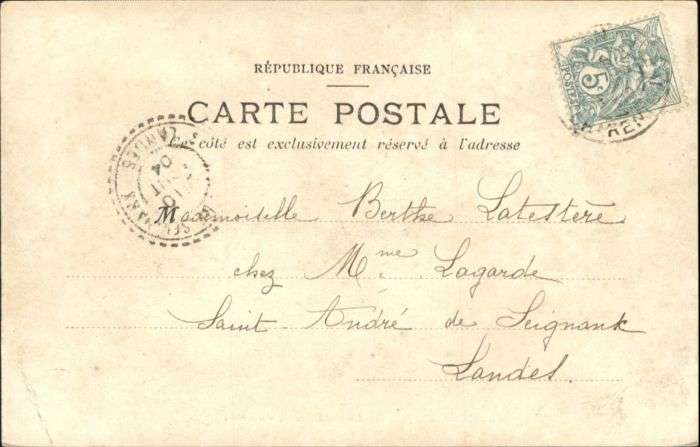 RÉPUBLIQUE FRANÇAISE
CARTE POSTALE
Ce côté est exclusivement réservé à l'adresse
POSTES 5
LANDES
04
Mademoiselle Berthe Latestère
chez Mme Lagarde
Saint-André de Seignank
Landes.